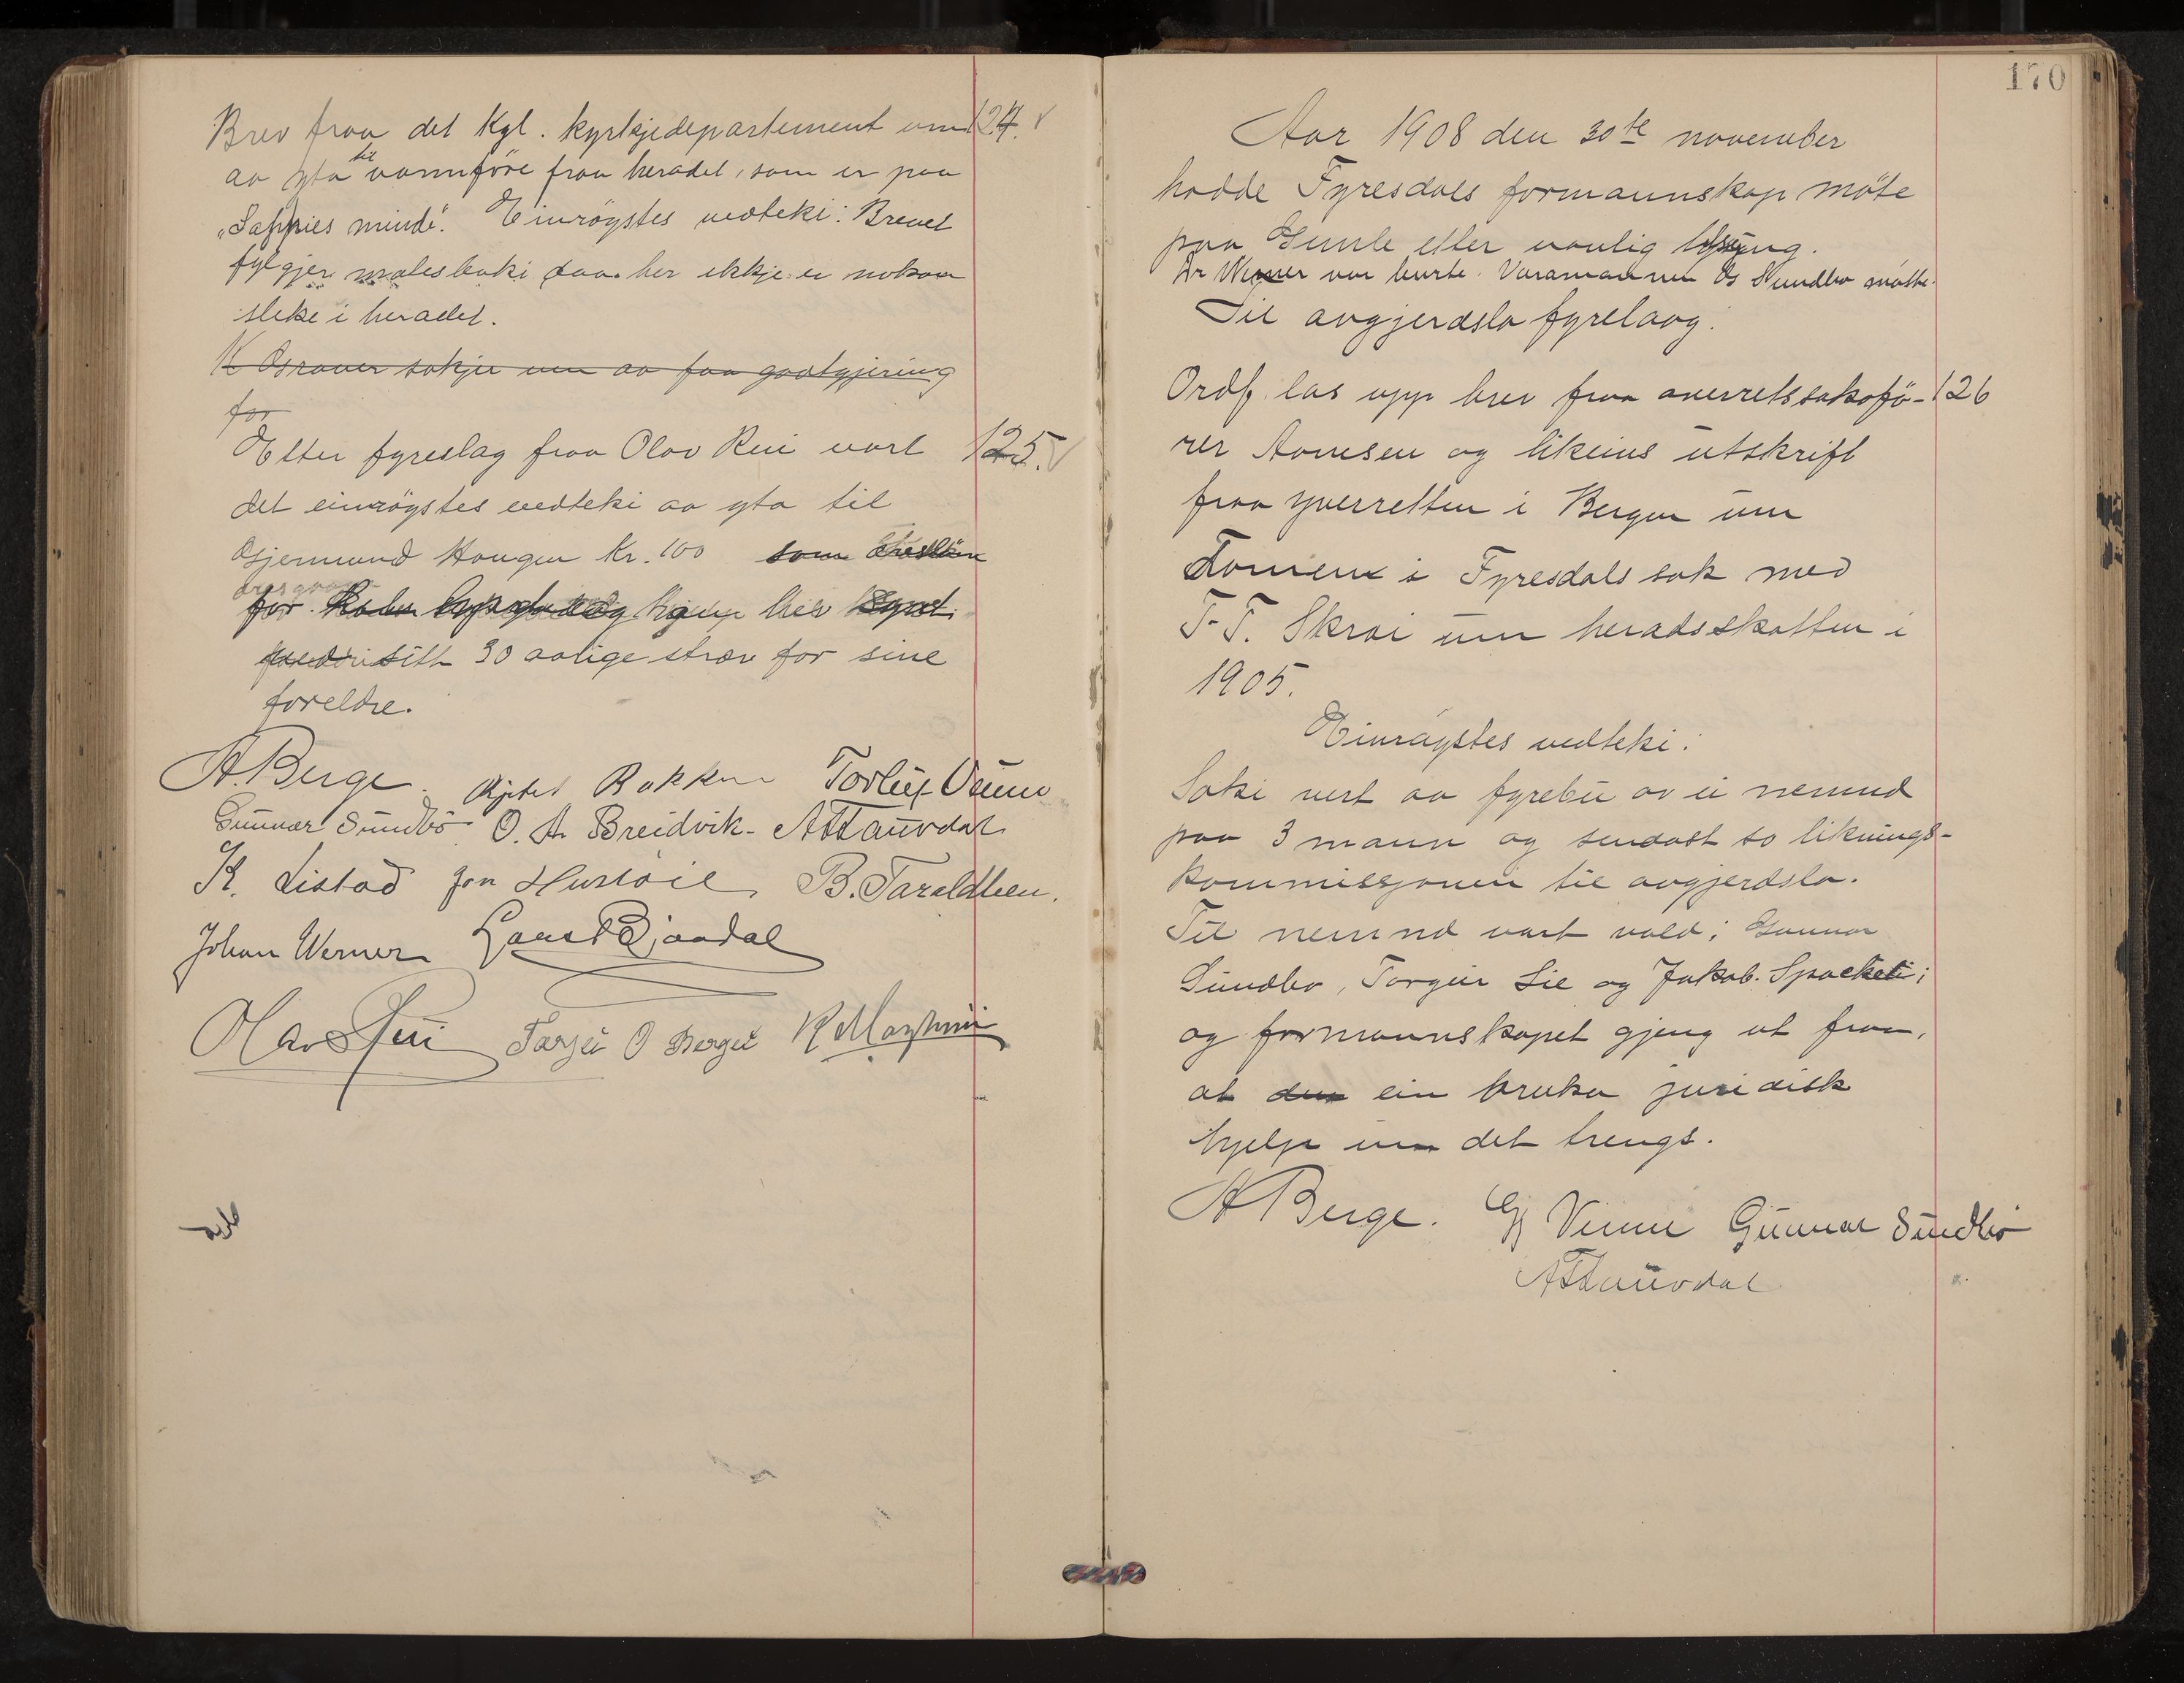 Brev fraa det Kgl. kyrkjedepartement um 124.
aa yta til vannföre fraa heradet, som er paa
"Saphies minde". Einrøystes vedteki: Brevet
fylgjer malesboki daa her ikkje er nokon
slike i heradet.
K Osraver søkjer um aa faa godtgjering
for
Etter fyreslag fraa Olav Rui vart 125.
det einrøystes vedteki aa yta til
Gjermund Haugen Kr. 100 som
for hev
sitt 30 aarige stræv for sine
foreldre.
A Berge. Kjetil Bakken Torleif Veum
Gunnar Sundbö O. A. Breidvik A T Taurdal
K. Listad Jon Hustöil B. Taraldlien.
Johan Werner Laurs Bjaadal
Olav Rui Tarjei O Berge
170
Aar 1908 den 30te november
hadde Fyresdals formannskap möte
paa Gimle etter vanlig lysing.
Dr Werner var burte. Varamannen Gs Sundbø møtte.
Til avgjerdsla fyrelaag:
Ordf. las upp brev fraa overretssakofö- 126
rer Aamsen og likeins utskrift
fraa yverretten i Bergen um
Domen i Fyresdals sak med
T. T. Skrai um heradsskatten i
1905.
Einrøystes vedteki:
Saki vert aa fyrebu av ei nemnd
paa 3 mann og sendast so liknings-
kommissjonen til avgjerdsla.
Til nemnd vart vald: Gunnar
Sundbø, Torgeir Lie og Jakob Spockeli;
og formannskapet gjeng ut fraa,
at den ein bruker juridisk
hjelp um det trengs.
A Berge. Gj Veum Gunnar Sundbö
A T Taurdal